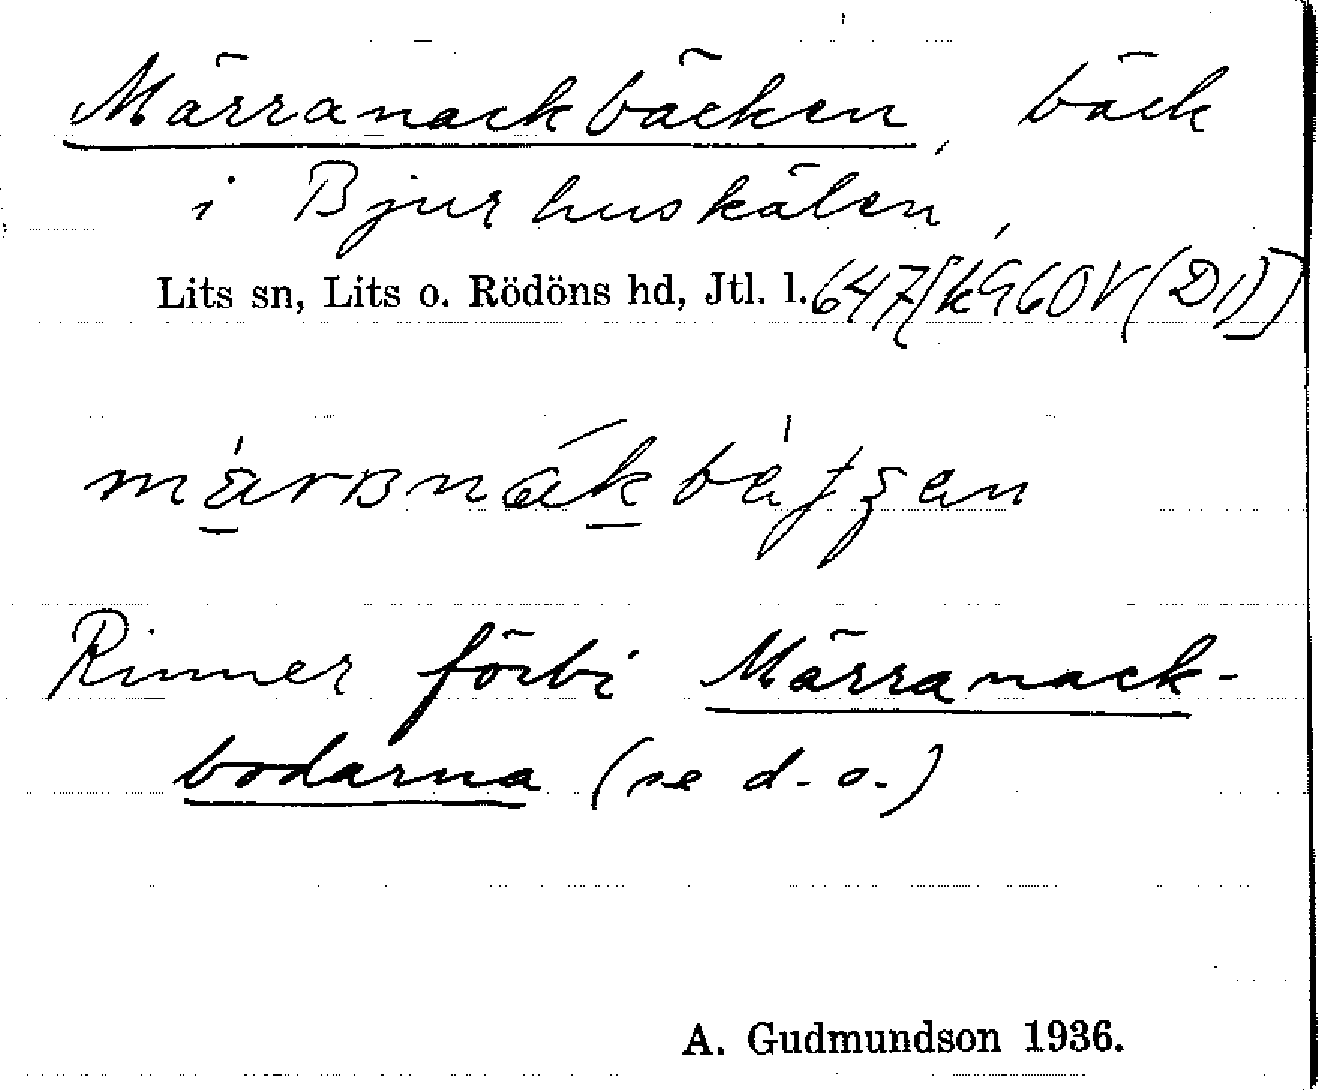 Märranackbäcken, bäck
i Bjurhuskälen,
Lits sn, Lits o. Rödöns hd, Jtl. l. 647[k960V(D1)]
Rinner förbi Märranack-
bodarna (se d. o.)
A. Gudmundson 1936.